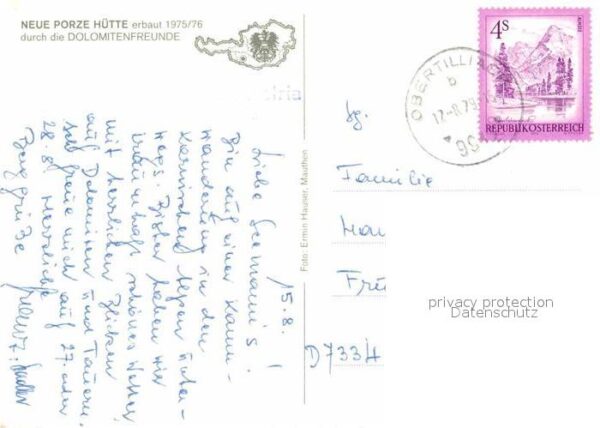 NEUE PORZE HÜTTE erbaut 1975/76
durch die DOLOMITENFREUNDE
4S
ALMSEE
REPUBLIK ÖSTERREICH
OBERTILLIACH
b
17.-8.79
15.8.
Liebe Seemann's!
Bin auf einer Kamm-
wanderung in den
Karnischen Alpen unter-
wegs. Bisher haben wir
traumhaft schönes Wetter
mit herrlichen Blicken
auf Dolomiten und Tauern.
freue mich auf 27. oder
28.8. Herzliche
Berggrüße
Foto: Ermin Hauser, Mauthen
Sg.
Familie
Fre
D7334
privacy protection
Datenschutz